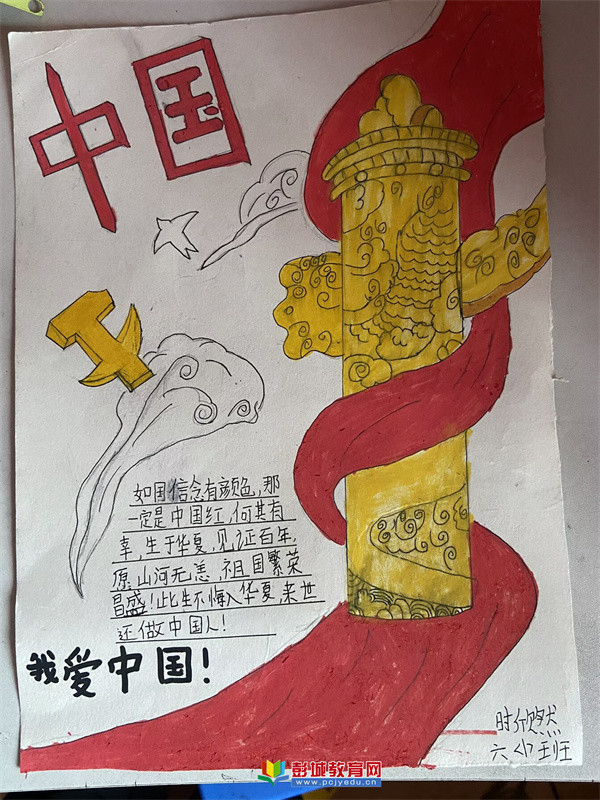 中国
如国信念有颜色,那
一定是中国红,何其有
幸,生于华夏,见证百年,
愿山河无恙,祖国繁荣
昌盛!此生不悔入华夏,来世
还做中国人!
我爱中国!
六
班
彭城教育网
www.pcjyedu.cn